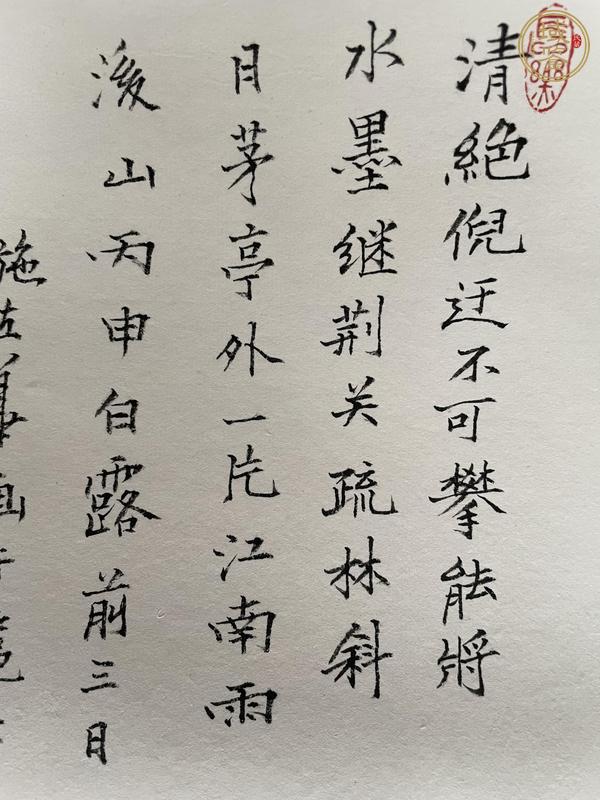 清絶倪迂不可攀能將
水墨继荆关疏林斜
日茅亭外一片江南雨
后山丙申白露前三日
施